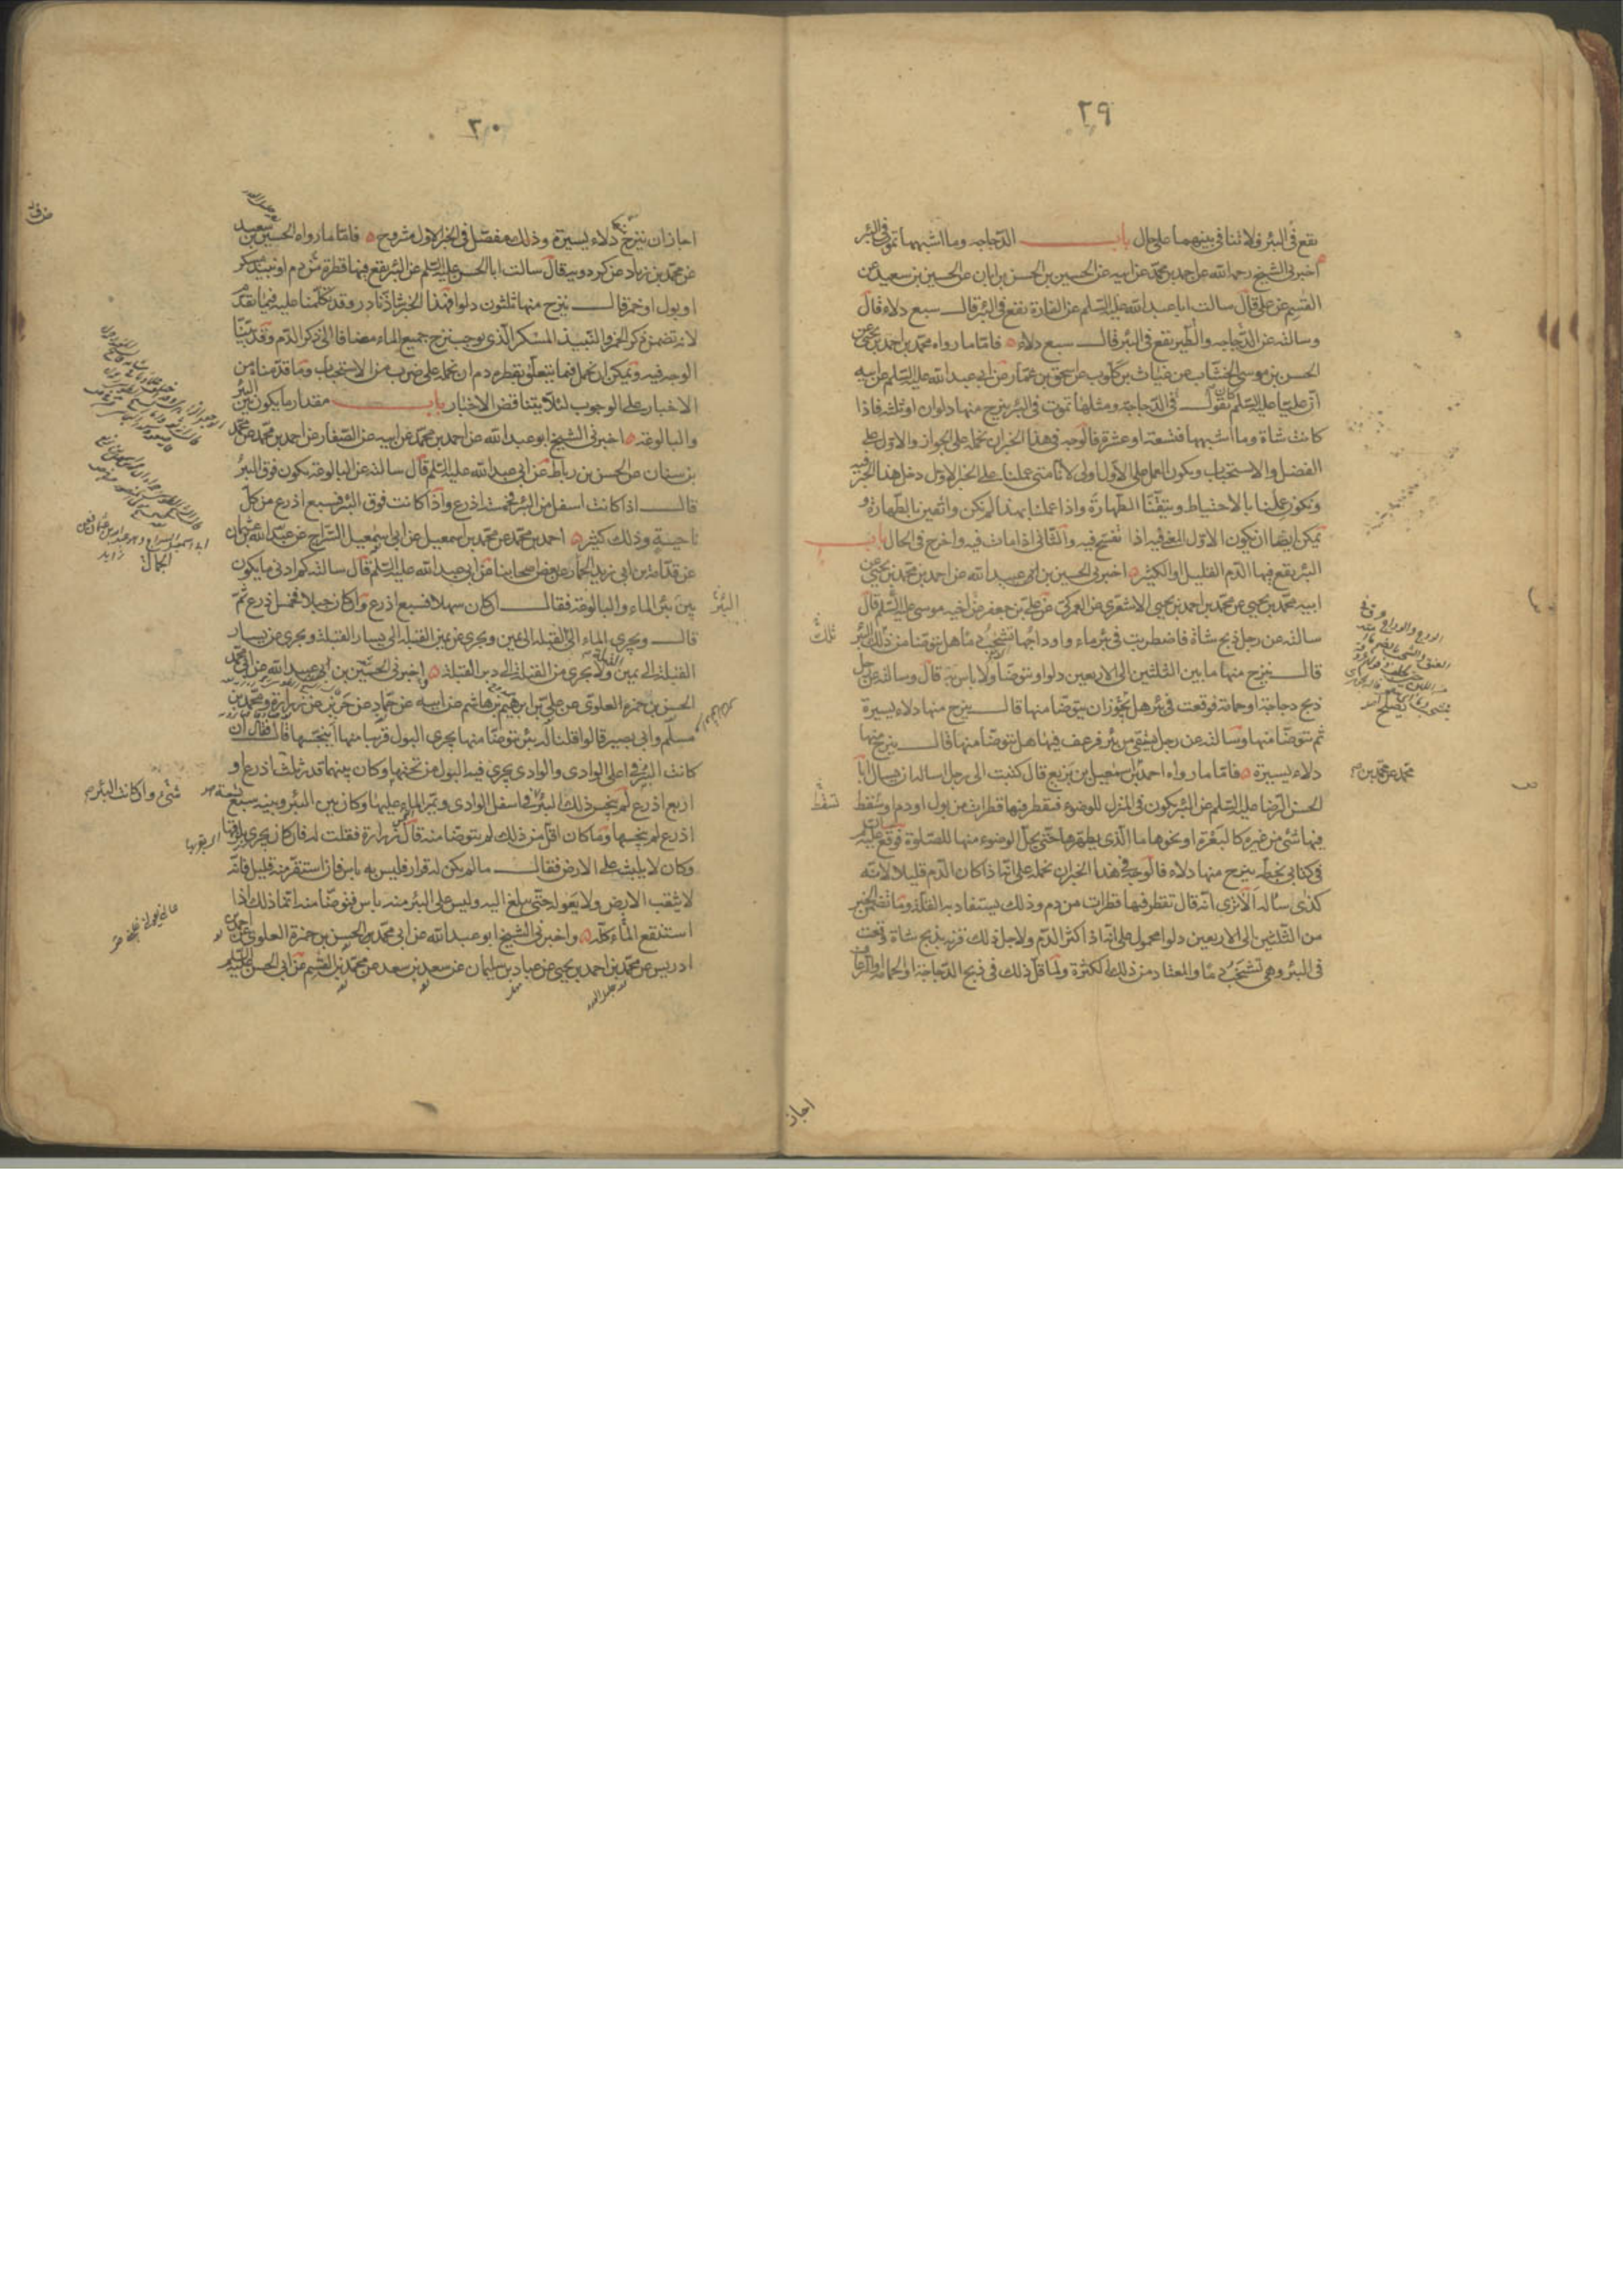 ٢٩
يقع فى البئر ولا تنافى بينهما على حال باب الدّجاجه وما اشبهها تموت فى البئر
اخبرنى الشيخ رحمه الله عن احمد بن محمّد عن ابيه عن الحسين بن الحسن بن ابان عن الحسين بن سعيد عن
القسم عن على قال سالت ابا عبد الله عليه السّلم عن الفارة تقع فى البئر قال سبع دلاء قال
وسالته عن الدّجاجه والطّير تقع فى البئر قال سبع دلاء فامّا ما رواه محمّد بن احمد بن يحيى عن
الحسن بن موسى الخشّاب عن غياث بن كلّوب عن اسحق بن عمّار عن ابى عبد الله عليه السّلم عن ابيه
ان عليّا عليه السّلم كان يقول فى الدّجاجة ومثلها تموت فى البئر ينزح منها دلوان او ثلثه فاذا
كانت شاة وما اشبهها فتسعة او عشرة فالوجه فى هذا الخبر ان نحمله على الجواز والاوّل على
الفضل والاستحباب ويكون العمل على الاول اولى لانّا متى عملنا على الخبر الاوّل دخل هذا الخبر فيه
ونكون علمنا بالاحتياط وتيقّنّا الطّهارة واذا عملنا بهذا لم نكن واثقين بالطّهارة و
يمكن ايضا ان يكون الاوّل المعنى فيه اذا تفسّخ فيه والثّانى اذا مات فيه واخرج فى الحال باب
البئر يقع فيها الدّم القليل او الكثير اخبرنى الحسين بن عبيد الله عن احمد بن محمّد بن يحيى عن
ابيه محمّد بن يحيى عن محمّد بن احمد بن يحيى الاشعرى عن العمركى عن على بن جعفر عن اخيه موسى عليه السّلم قال
سالته عن رجل ذبح شاة فاضطربت فى بئر ماء واوداجها تشخب دما هل يتوضّا من ذلك البئر
قال ينزح منها ما بين الثلثين الى الاربعين دلوا ويتوضّا ولا باس به قال وسالته عن رجل
ذبح دجاجة او حمامة فوقعت فى بئر هل يجوز ان يتوضّا منها قال ينزح منها دلاء يسيرة
ثم يتوضّا منها وسالته عن رجل يستقى من بئر فرعف فيها هل يتوضّا منها قال ينزح منها
دلاء يسيرة فامّا ما رواه احمد بن اسمعيل بن بزيع قال كتبت الى رجل اساله ان يسال ابا
الحسن الرّضا عليه السّلم عن البئر يكون فى المنزل للوضوء فيقطر فيها قطرات من بول او دم او يسقط
فيها شئ من غيره كالبعرة او نحوها ما الذى يطهّرها حتّى يحلّ الوضوء منها للصّلوة فوقّع عليه السلم
فى كتابى بخطّه ينزح منها دلاء فالوجه فى هذا الخبر ان نحمله على انّه اذا كان الدّم قليلا لانّه
كذى ساله الا ترى انّه قال تقطر فيها قطرات من دم وذلك يستفاد به القلّة وما تضمّن الخبر
من الثّلثين الى الاربعين دلوا محمول على انّه اذا كثر الدّم ولاجل ذلك قرنه بذبح شاة وقعت
فى البئر وهى تشخب دما والمعتاد من ذلك الكثرة ولمّا قلّ ذلك فى ذبح الدّجاجة او الحمامة والرعاف
ثلث
محمّد عن محمّد بن
تسقط
اجاز
٣٠
اجاز ان ينزح دلاء يسيرة وذلك مفصّل فى الخبر الاول مشروح فامّا ما رواه الحسين بن سعيد
عن محمّد بن زياد عن كردويه قال سالت ابا الحسن عليه السّلم عن البئر يقع فيها قطرة من دم او نبيذ مسكر
او بول او خمر قال ينزح منها ثلثون دلوا فهذا الخبر شاذّ نادر وقد تكلّمنا عليه فيما تقدّم
لانه تضمن ذكر الخمر والنّبيذ المسكر الّذى يوجب نزح جميع الماء مضافا الى ذكر الدّم وقد بيّنّا
الوجه فيه ويمكن ان نحمل فيما يتعلق بقطرة دم ان نحمله على ضرب من الاستحباب وما قدّمناه من
الاخبار على الوجوب لئلّا يتناقض الاخبار باب مقدار ما يكون بين البئر
والبالوعة اخبرنى الشيخ ابو عبد الله عن احمد بن محمّد عن ابيه عن الصّفار عن احمد بن محمّد عن محمّد
بن سنان عن الحسن بن رباط عن ابى عبد الله عليه السّلم قال سالته عن البالوعة يكون فوق البئر
قال اذا كانت اسفل من البئر فخمسة اذرع واذا كانت فوق البئر فسبع اذرع من كلّ
ناحية وذلك كثير احمد بن محمّد عن محمّد بن اسمعيل عن ابى اسمعيل السّراج عن عبد الله بن عثمان
عن قدامة بن ابى زيد الحمّار عن بعض اصحابنا عن ابى عبد الله عليه السّلم قال سالته كم ادنى ما يكون
بين بئر الماء والبالوعة فقال ان كان سهلا فسبع اذرع وان كان جبلا فخمس اذرع ثمّ
قال ويجرى الماء الى القبلة الى يمين ويجرى عن يمين القبلة الى يسار القبلة ويجرى عن يسار
القبلة الى يمين القبلة ولا يجرى من القبلة الى دبر القبلة واخبرنى الحسين بن عبيد الله عن ابى محمّد
الحسن بن حمزه العلوى عن على بن ابرهيم بن هاشم عن ابيه عن حمّاد عن حريز عن زرارة ومحمّد بن
مسلم وابى بصير قالوا قلنا له بئر يتوضّا منها يجرى البول قريبا منها اينجّسها قال فقال ان
كانت البئر فى اعلى الوادى والوادى يجرى فيه البول من تحتها وكان بينهما قدر ثلث اذرع او
اربع اذرع لم ينجّس ذلك البئر فى اسفل الوادى ويمرّ الماء عليها وكان بين البئر وبينه سبع
اذرع لم ينجّسها وما كان اقلّ من ذلك لم يتوضّا منه قال زرارة فقلت له فان كان يجرى بلزقها
وكان لا يلبث على الارض فقال ما لم يكن له قرار فليس به باس فان استقرّ منه قليل فانّه
لا يثقب الارض ولا يغوله حتّى يبلغ اليه وليس على البئر منه باس فتوضّا منه انّما ذلك اذا
استنقع الماء كلّه واخبرنى الشيخ ابو عبد الله عن ابى محمّد بن الحسن بن حمزة العلوى عن احمد بن
ادريس عن محمّد بن احمد بن يحيى عن عباد بن سليمان عن سعد بن سعد عن محمّد بن القسم عن ابى الحسن عليه السّلم
البئر
شئ وان كانت البئر